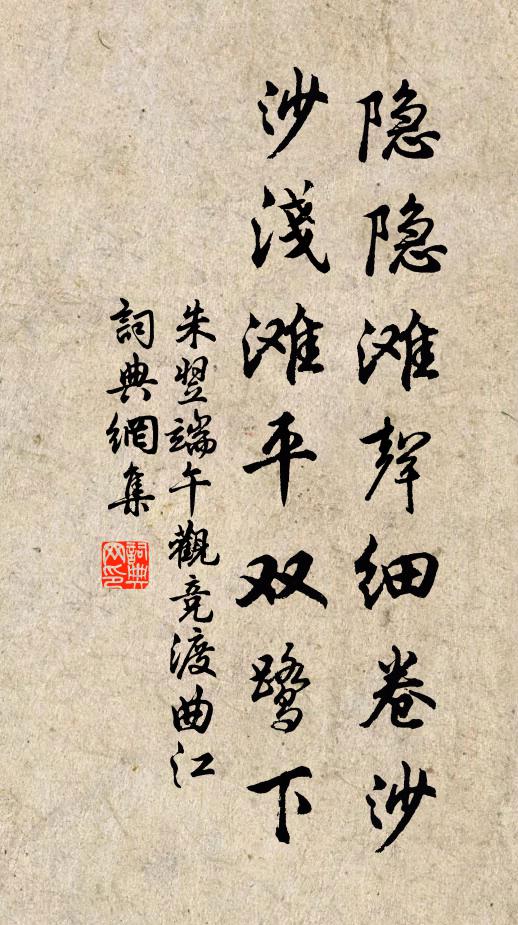 隐隐滩聲细卷沙
沙淺滩平双鹭下
朱翌端午觀竞渡曲江
詞典網集
詞典网印